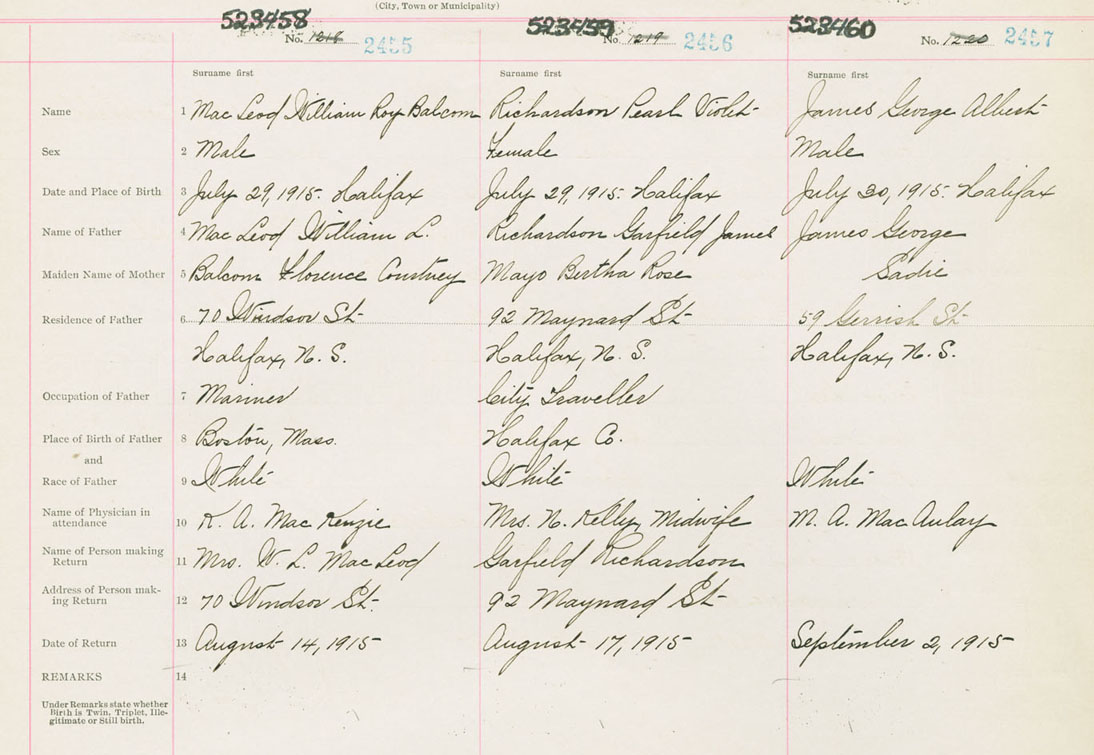 (City, Town or Municipality)
523458 523459 523460
No. 1218 2455 No. 1219 2456 No. 1220 2457
Surname first Surname first Surname first
Name 1 Mac Leod William Roy Balcom Richardson Pearl Violet James George Albert
Sex 2 Male Female Male
Date and Place of Birth 3 July 29, 1915. Halifax July 29, 1915. Halifax July 30, 1915. Halifax
Name of Father 4 Mac Leod William L. Richardson Garfield James James George
Maiden Name of Mother 5 Balcom Florence Courtney Mayo Bertha Rose Sadie
Residence of Father 6 70 Windsor St. 92 Maynard St. 59 Gerrish St.
Halifax, N. S. Halifax, N. S. Halifax, N. S.
Occupation of Father 7 Mariner City Traveller
Place of Birth of Father 8 Boston, Mass. Halifax Co.
and
Race of Father 9 White White White
Name of Physician in
attendance 10 K. A. Mac Kenzie Mrs. N. Kelly, Midwife M. A. Mac Aulay
Name of Person making
Return 11 Mrs. W. L. MacLeod Garfield Richardson
Address of Person mak-
ing Return 12 70 Windsor St. 92 Maynard St.
Date of Return 13 August 14, 1915 August 17, 1915 September 2, 1915
REMARKS 14
Under Remarks state whether
Birth is Twin, Triplet, Ille-
gitimate or Still birth.